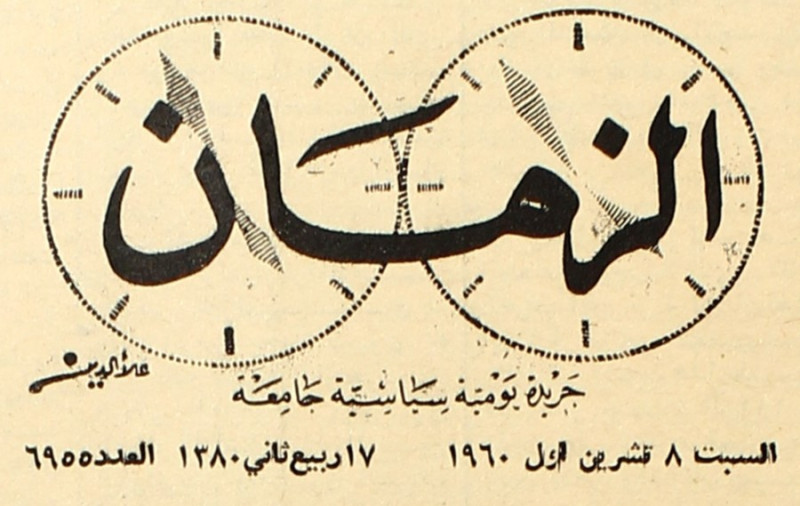 الزمان
علاء الدين
جَريدة يَومية سِيَاسِيّة جَامِعَة
السبت ٨ تشرين اول ١٩٦٠ ١٧ ربيع ثاني ١٣٨٠ العدد ٦٩٥٥